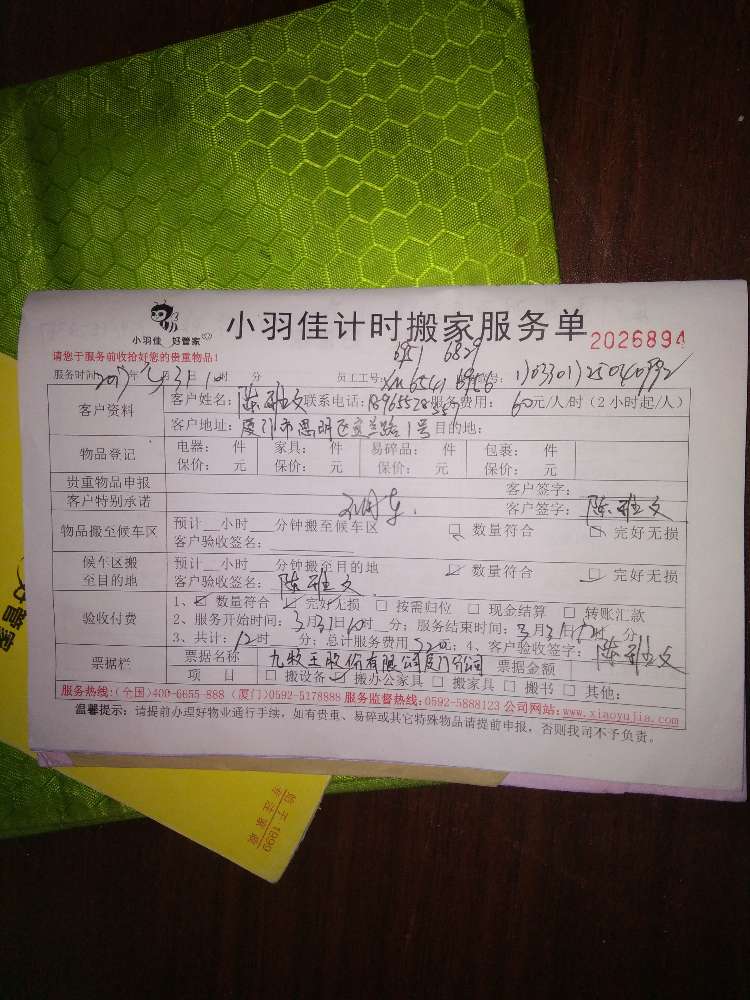 小羽佳 好管家
小羽佳计时搬家服务单 2026894
请您于服务前收拾好您的贵重物品!
6951 6829
服务时间: 2017年 3月31日 时 分 员工工号: XM6541 6956
客户资料 客户姓名: 陈雅文 联系电话: 服务费用: 60元/人/时(2小时起/人)
客户地址: 厦门市思明区宜兰路1号 目的地:
物品登记 电器: 件 家具: 件 易碎品: 件 包裹: 件
保价: 元 保价: 元 保价: 元 保价: 元
贵重物品申报 客户签字:
客户特别承诺 客户签字: 陈雅文
物品搬至候车区 预计__小时__分钟搬至候车区 □ 数量符合 □ 完好无损
客户验收签名:
候车区搬至目的地 预计__小时__分钟搬至目的地 ☑ 数量符合 □ 完好无损
客户验收签名: 陈雅文
验收付费 1、☑ 数量符合 ☑ 完好无损 □ 按需归位 □ 现金结算 □ 转账汇款
2、服务开始时间: 3月31日10时 分; 服务结束时间: 3月31日 时 分;
3、共计: 12时 分; 总计服务费用 元; 4、客户验收签字: 陈雅文
票据栏 票据名称 九牧王股份有限公司厦门分公司 票据金额
项 目 □ 搬设备 ☑ 搬办公家具 □ 搬家具 □ 搬书 □ 其他:
服务热线:(全国)400-6655-888 (厦门)0592-5178888 服务监督热线:0592-5888123 公司网站:www.xiaoyujia.com
温馨提示: 请提前办理好物业通行手续, 如有贵重、易碎或其它特殊物品请提前申报, 否则我司不予负责。
始于1999
专注家政